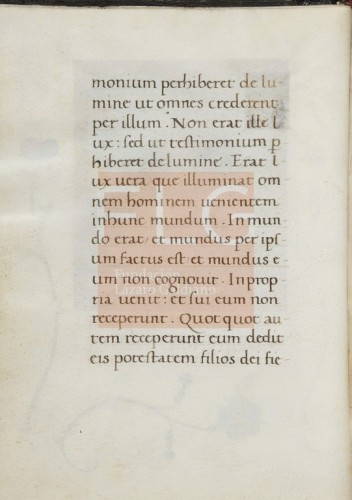 monium perhiberet de lu-
mine ut omnes crederent
per illum. Non erat ille l
ux: sed ut testimonium p̲
hiberet de lumine. Erat l
ux uera que illuminat om
nem hominem uenientem
in hunc mundum. In mun
do erat et mundus per ips
um factus est et mundus e
um non cognouit. In prop
ria uenit: et sui eum non
receperunt. Quot quot au
tem receperunt eum dedit
eis potestatem filios dei fie
FLG
Fundación
Lázaro Galdiano